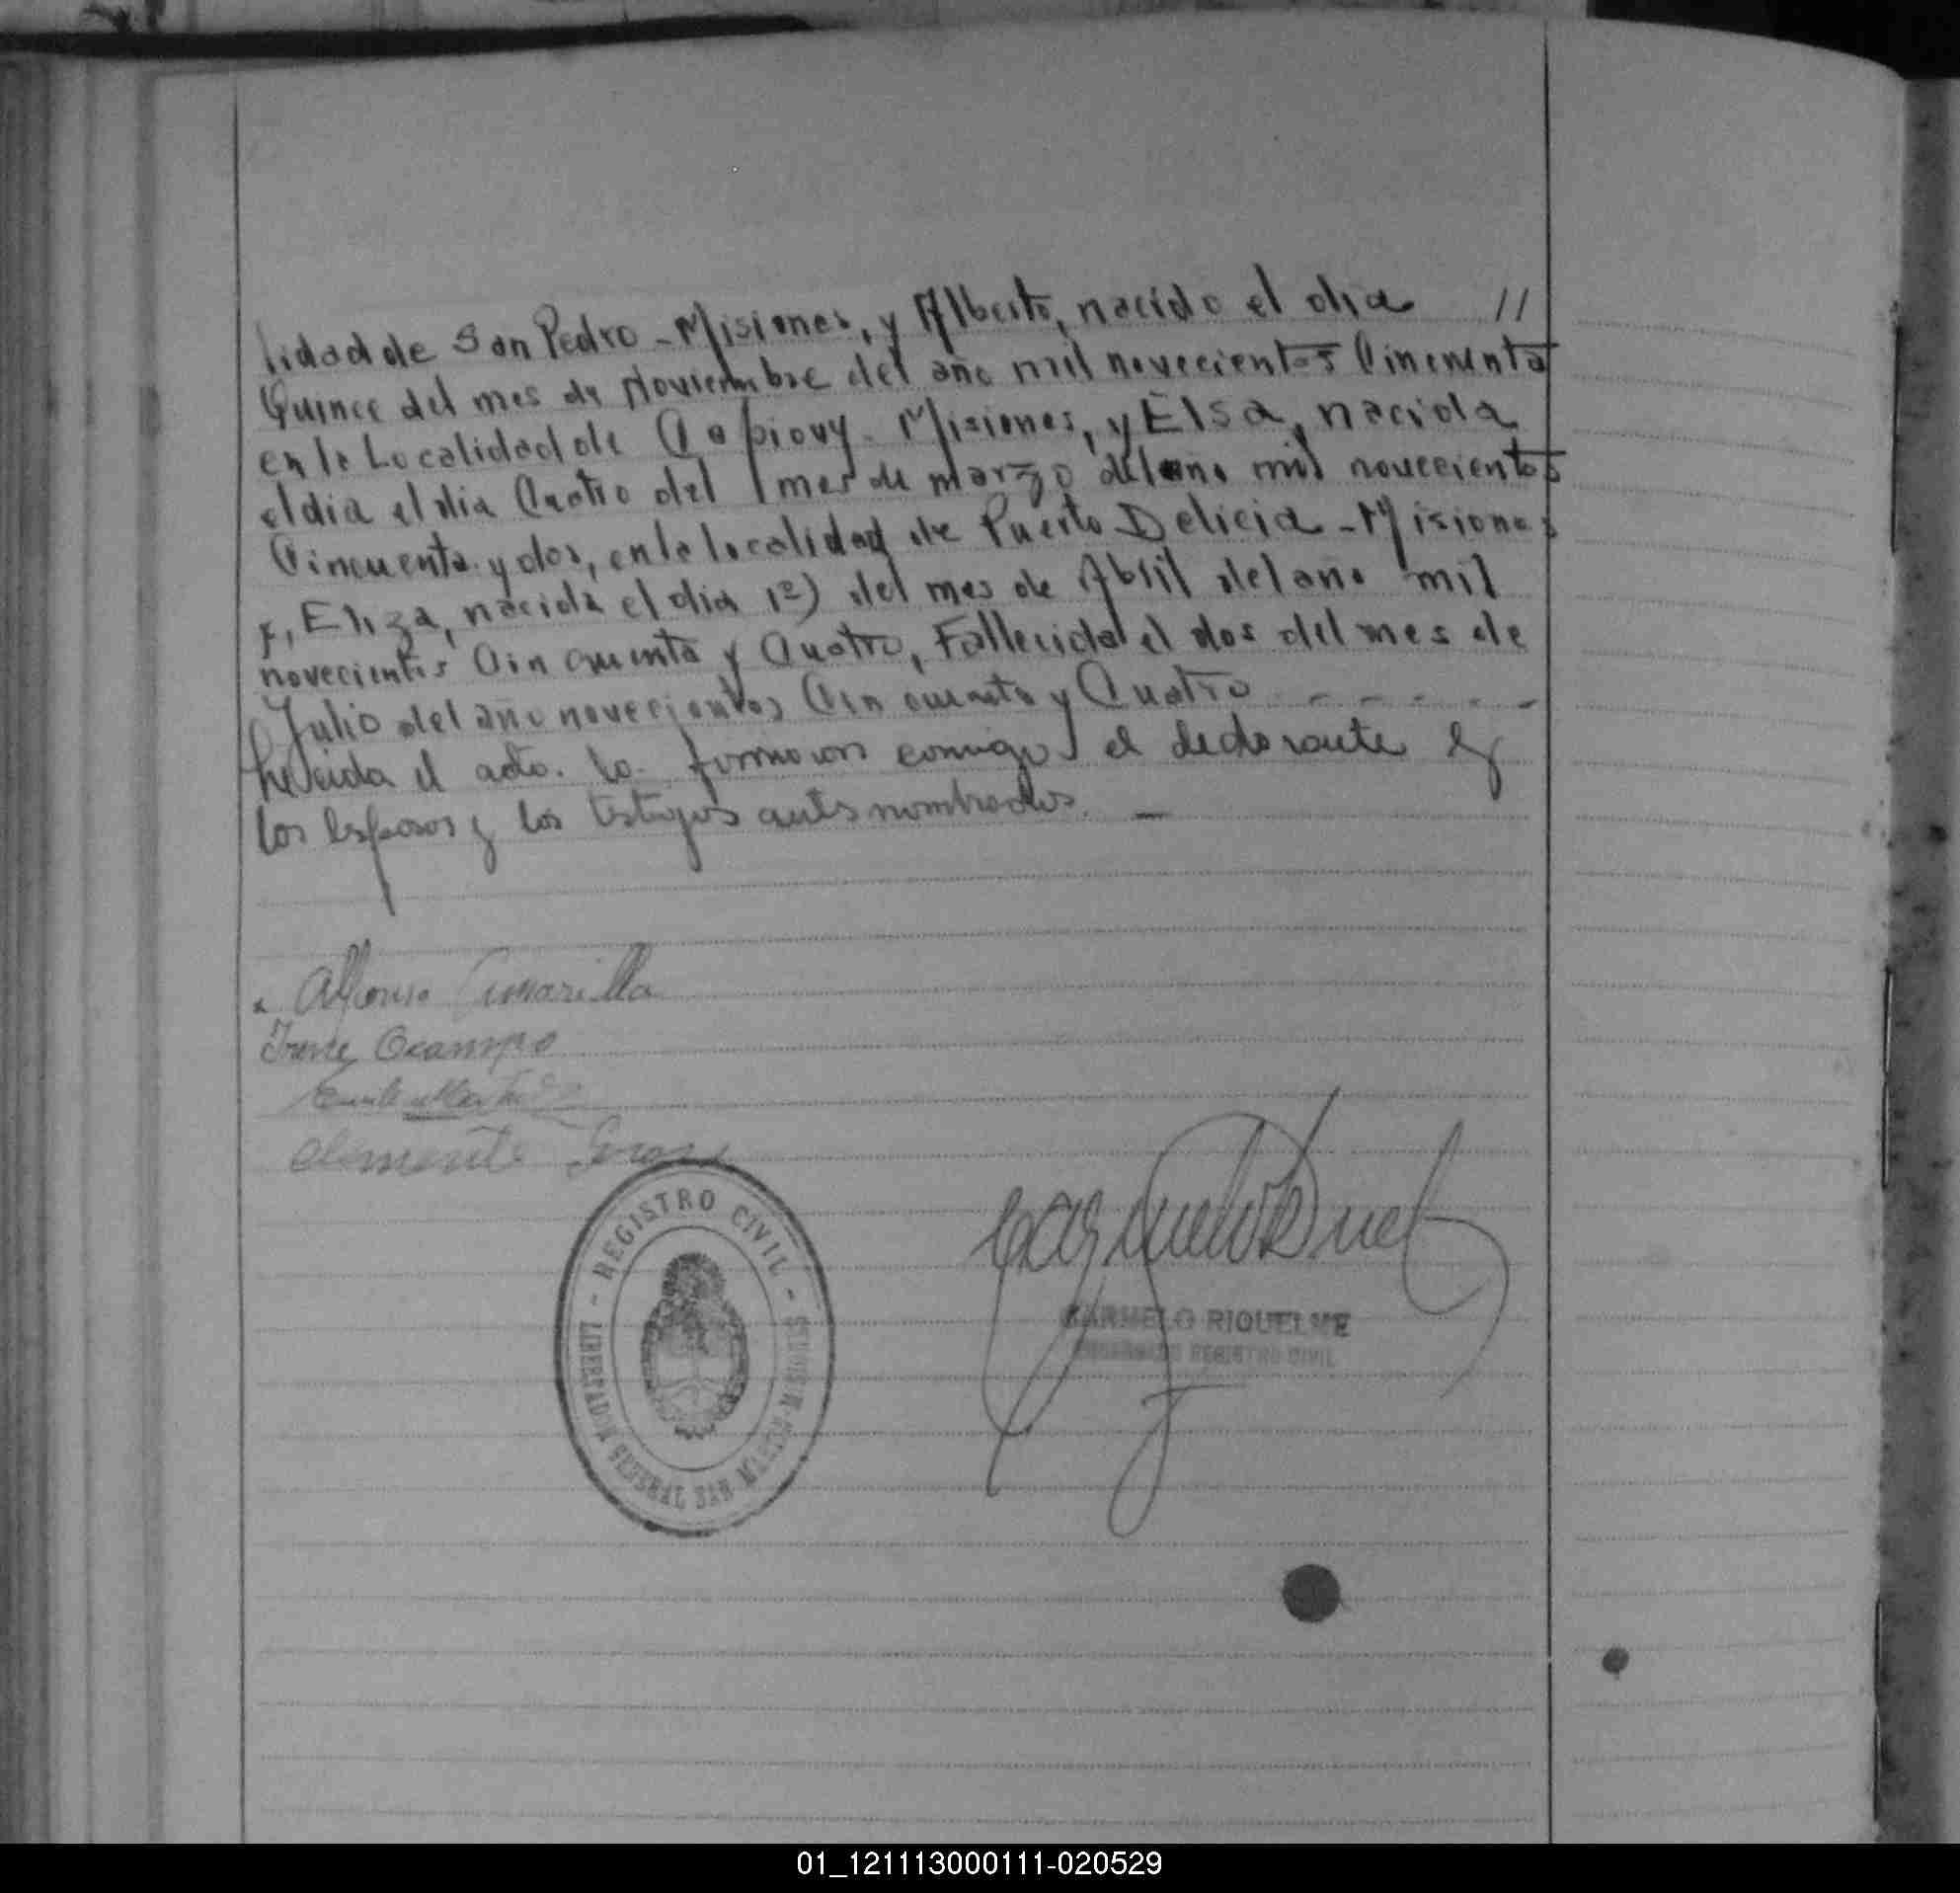 lidad de San Pedro - Misiones, y Alberto, nacido el dia //
Quince del mes de Noviembre del año mil novecientos Cincuenta
en la Localidad de Capiovy - Misiones, y Elsa, nacida
el dia el dia Cuatro del mes de marzo del año mil novecientos
Cincuenta y dos, en la localidad de Puerto Delicia - Misiones
y, Eliza, nacida el dia 1º) del mes de Abril del año mil
novecientos Cincuenta y Cuatro, Fallecida el dos del mes de
Julio del año novecientos Cincuenta y Cuatro - - - - -
el acto. lo firmaron conmigo el declarante y
los Esposos y los testigos antes nombrados. -
Alfonso
Irene Ocampo
Clemente
REGISTRO CIVIL - LIBERTADOR GENERAL SAN MARTIN - MISIONES
CARMELO RIQUELME
ENCARGADO REGISTRO CIVIL
01_121113000111-020529